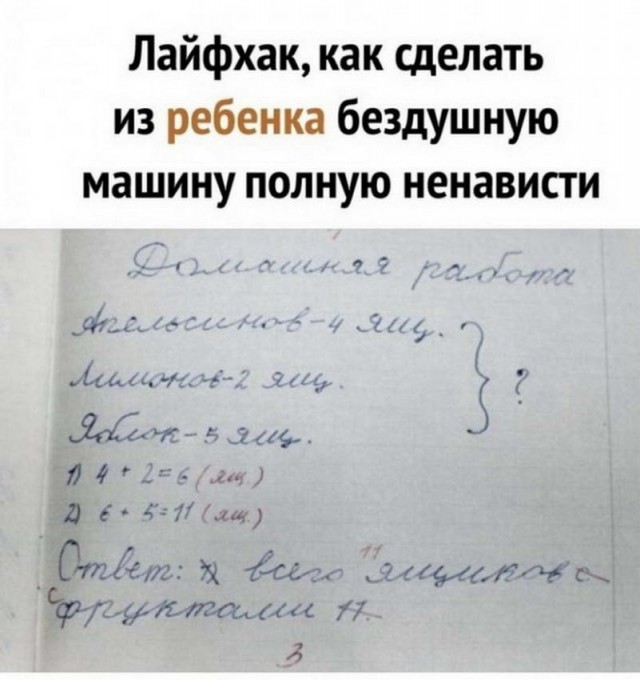 Лайфхак, как сделать
из ребенка бездушную
машину полную ненависти
Домашняя работа
Апельсинов-4 ящ.
Лимонов-2 ящ. } ?
Яблок-5 ящ.
1) 4 + 2=6 (ящ.)
2) 6 + 5=11 (ящ.)
11
Ответ: всего ящиков с
фруктами 11.
3